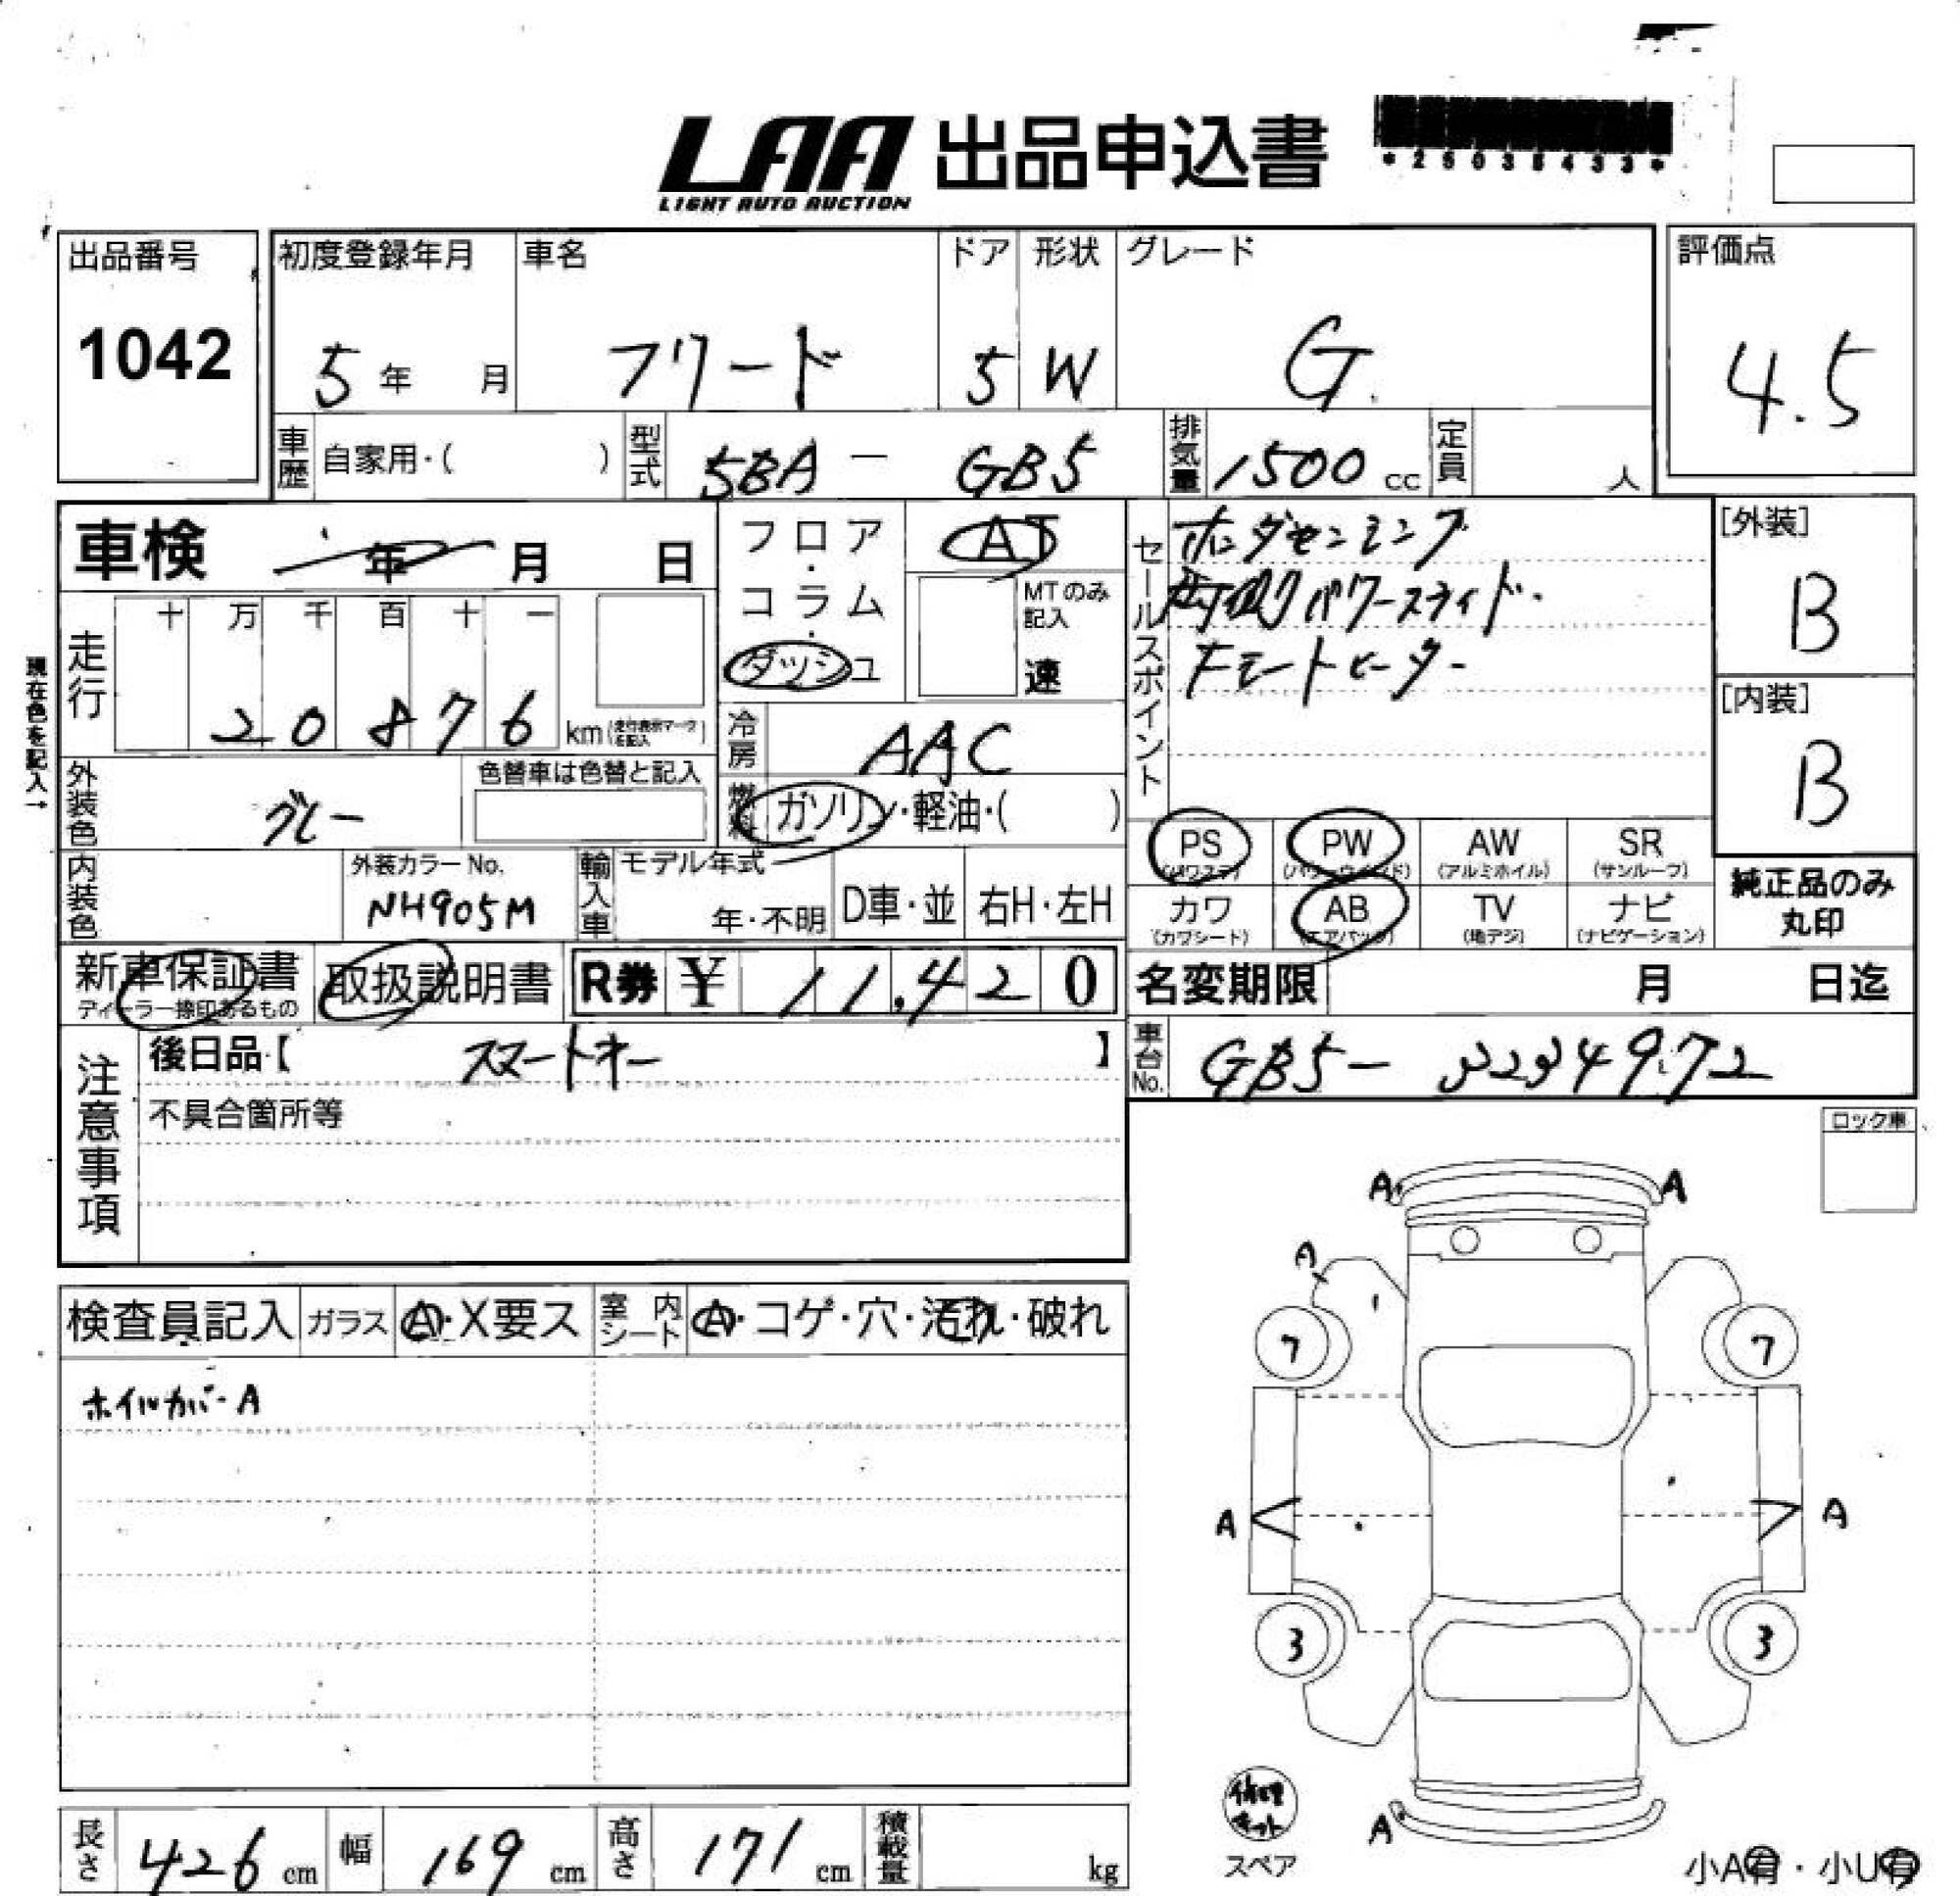 LAA 出品申込書
LIGHT AUTO AUCTION
出品番号
1042
初度登録年月
5年 月
車名
フリード
ドア
5
形状
W
グレード
G
評価点
4.5
車歴 自家用・( )
型式 5BA - GB5
排気量 1500 cc
定員 人
車検 年 月 日
フロア・コラム・ダッシュ
AT
MTのみ記入
速
セールスポイント
ホンダセンシング
片側パワースライド
[外装]
B
[内装]
B
現在色を記入→
走行
十 万 千 百 十 一
2 0 8 7 6 km
冷房 AAC
外装色 グレー
色替車は色替と記入
燃料 ガソリン・軽油・( )
PS (パワステ)
PW (パワーウインド)
AW (アルミホイル)
SR (サンルーフ)
カワ (カワシート)
AB (エアバック)
TV (地デジ)
ナビ (ナビゲーション)
純正品のみ
丸印
内装色
外装カラーNo.
NH905M
輸入車
モデル年式
年・不明
D車・並
右H・左H
新車保証書
ディーラー捺印あるもの
取扱説明書
R券 ¥ 11,420
名変期限 月 日迄
注意事項
後日品【 スマートキー 】
車台No. GB5- 3234972
不具合箇所等
ロック車
A A
A
検査員記入
ガラス A・X要ス
室内シート A・コゲ・穴・汚れ・破れ
7 7
ホイルカバーA
A A
3 3
修理キット
スペア
A
長さ 426 cm
幅 169 cm
高さ 171 cm
積載量 kg
小A有・小U有